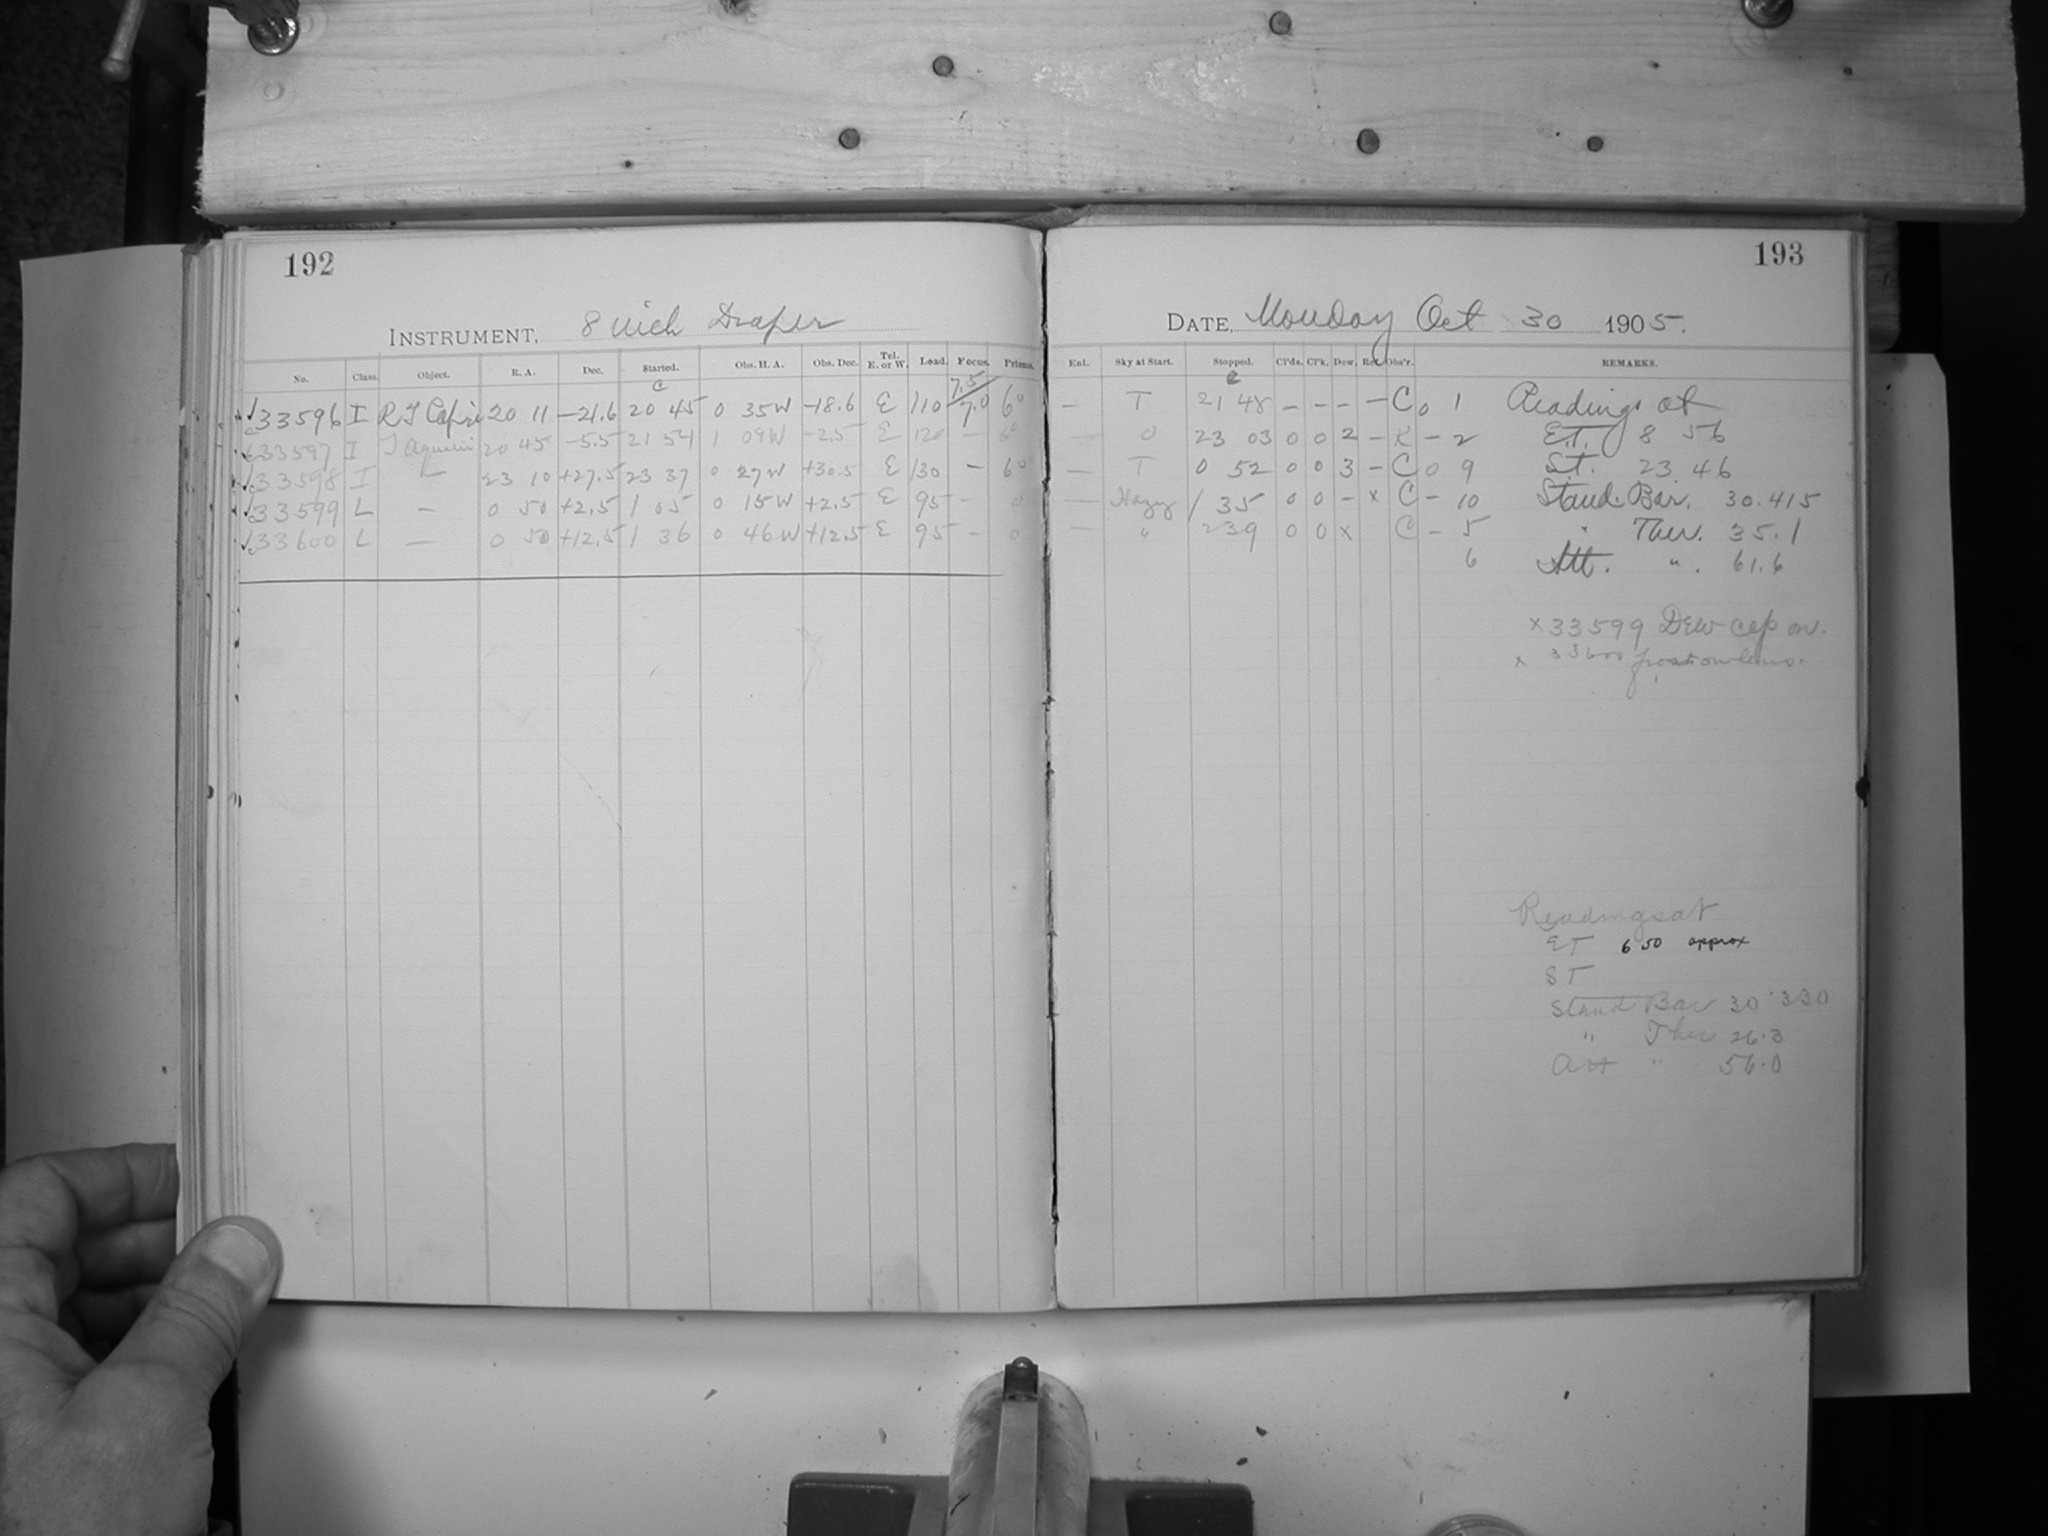 192
INSTRUMENT, 8 inch Draper
No. Class. Object. R. A. Dec. Started. Obs. H. A. Obs. Dec. Tel. E. or W. Load. Focus. Prisms.
33596 I R T Capri 20 11 -21.6 20 45 0 35W -18.6 E 110 7.5 7.0 6°
33597 I T Aquarii 20 45 -5.5 21 54 1 09W -2.5 E 120 - 6°
33598 I L 23 10 +27.5 23 37 0 27W +30.5 E 130 - 6°
33599 L - 0 50 +2.5 1 05 0 15W +2.5 E 95 - 0
33600 L - 0 50 +12.5 1 36 0 46W +12.5 E 95 - 0
193
DATE, Monday Oct 30 1905.
Enl. Sky at Start. Stopped. Cl'ds. Cl'k. Dew. Ref. Obs'r. REMARKS.
- T 21 48 - - - - C 0 1 Readings at
- 0 23 03 0 0 2 - K - 2 E.T. 8 56
- T 0 52 0 0 3 - C 0 9 St. 23 46
- Hazy 1 35 0 0 - x C - 10 Stand. Bar. 30.415
- " 2 39 0 0 x C - 5 " Ther. 35.1
6 Att. " 61.6
x 33599 Dew cap on.
x 33600 frost on lens.
Readings at
ET 6 50 approx
ST
Stand Bar 30.330
" Ther 26.3
Att " 56.0